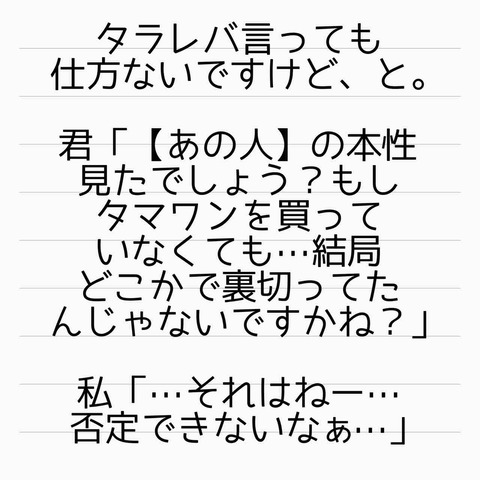 タラレバ言っても
仕方ないですけど、と。
君「【あの人】の本性
見たでしょう？もし
タマワンを買って
いなくても…結局
どこかで裏切ってた
んじゃないですかね？」
私「…それはねー…
否定できないなぁ…」